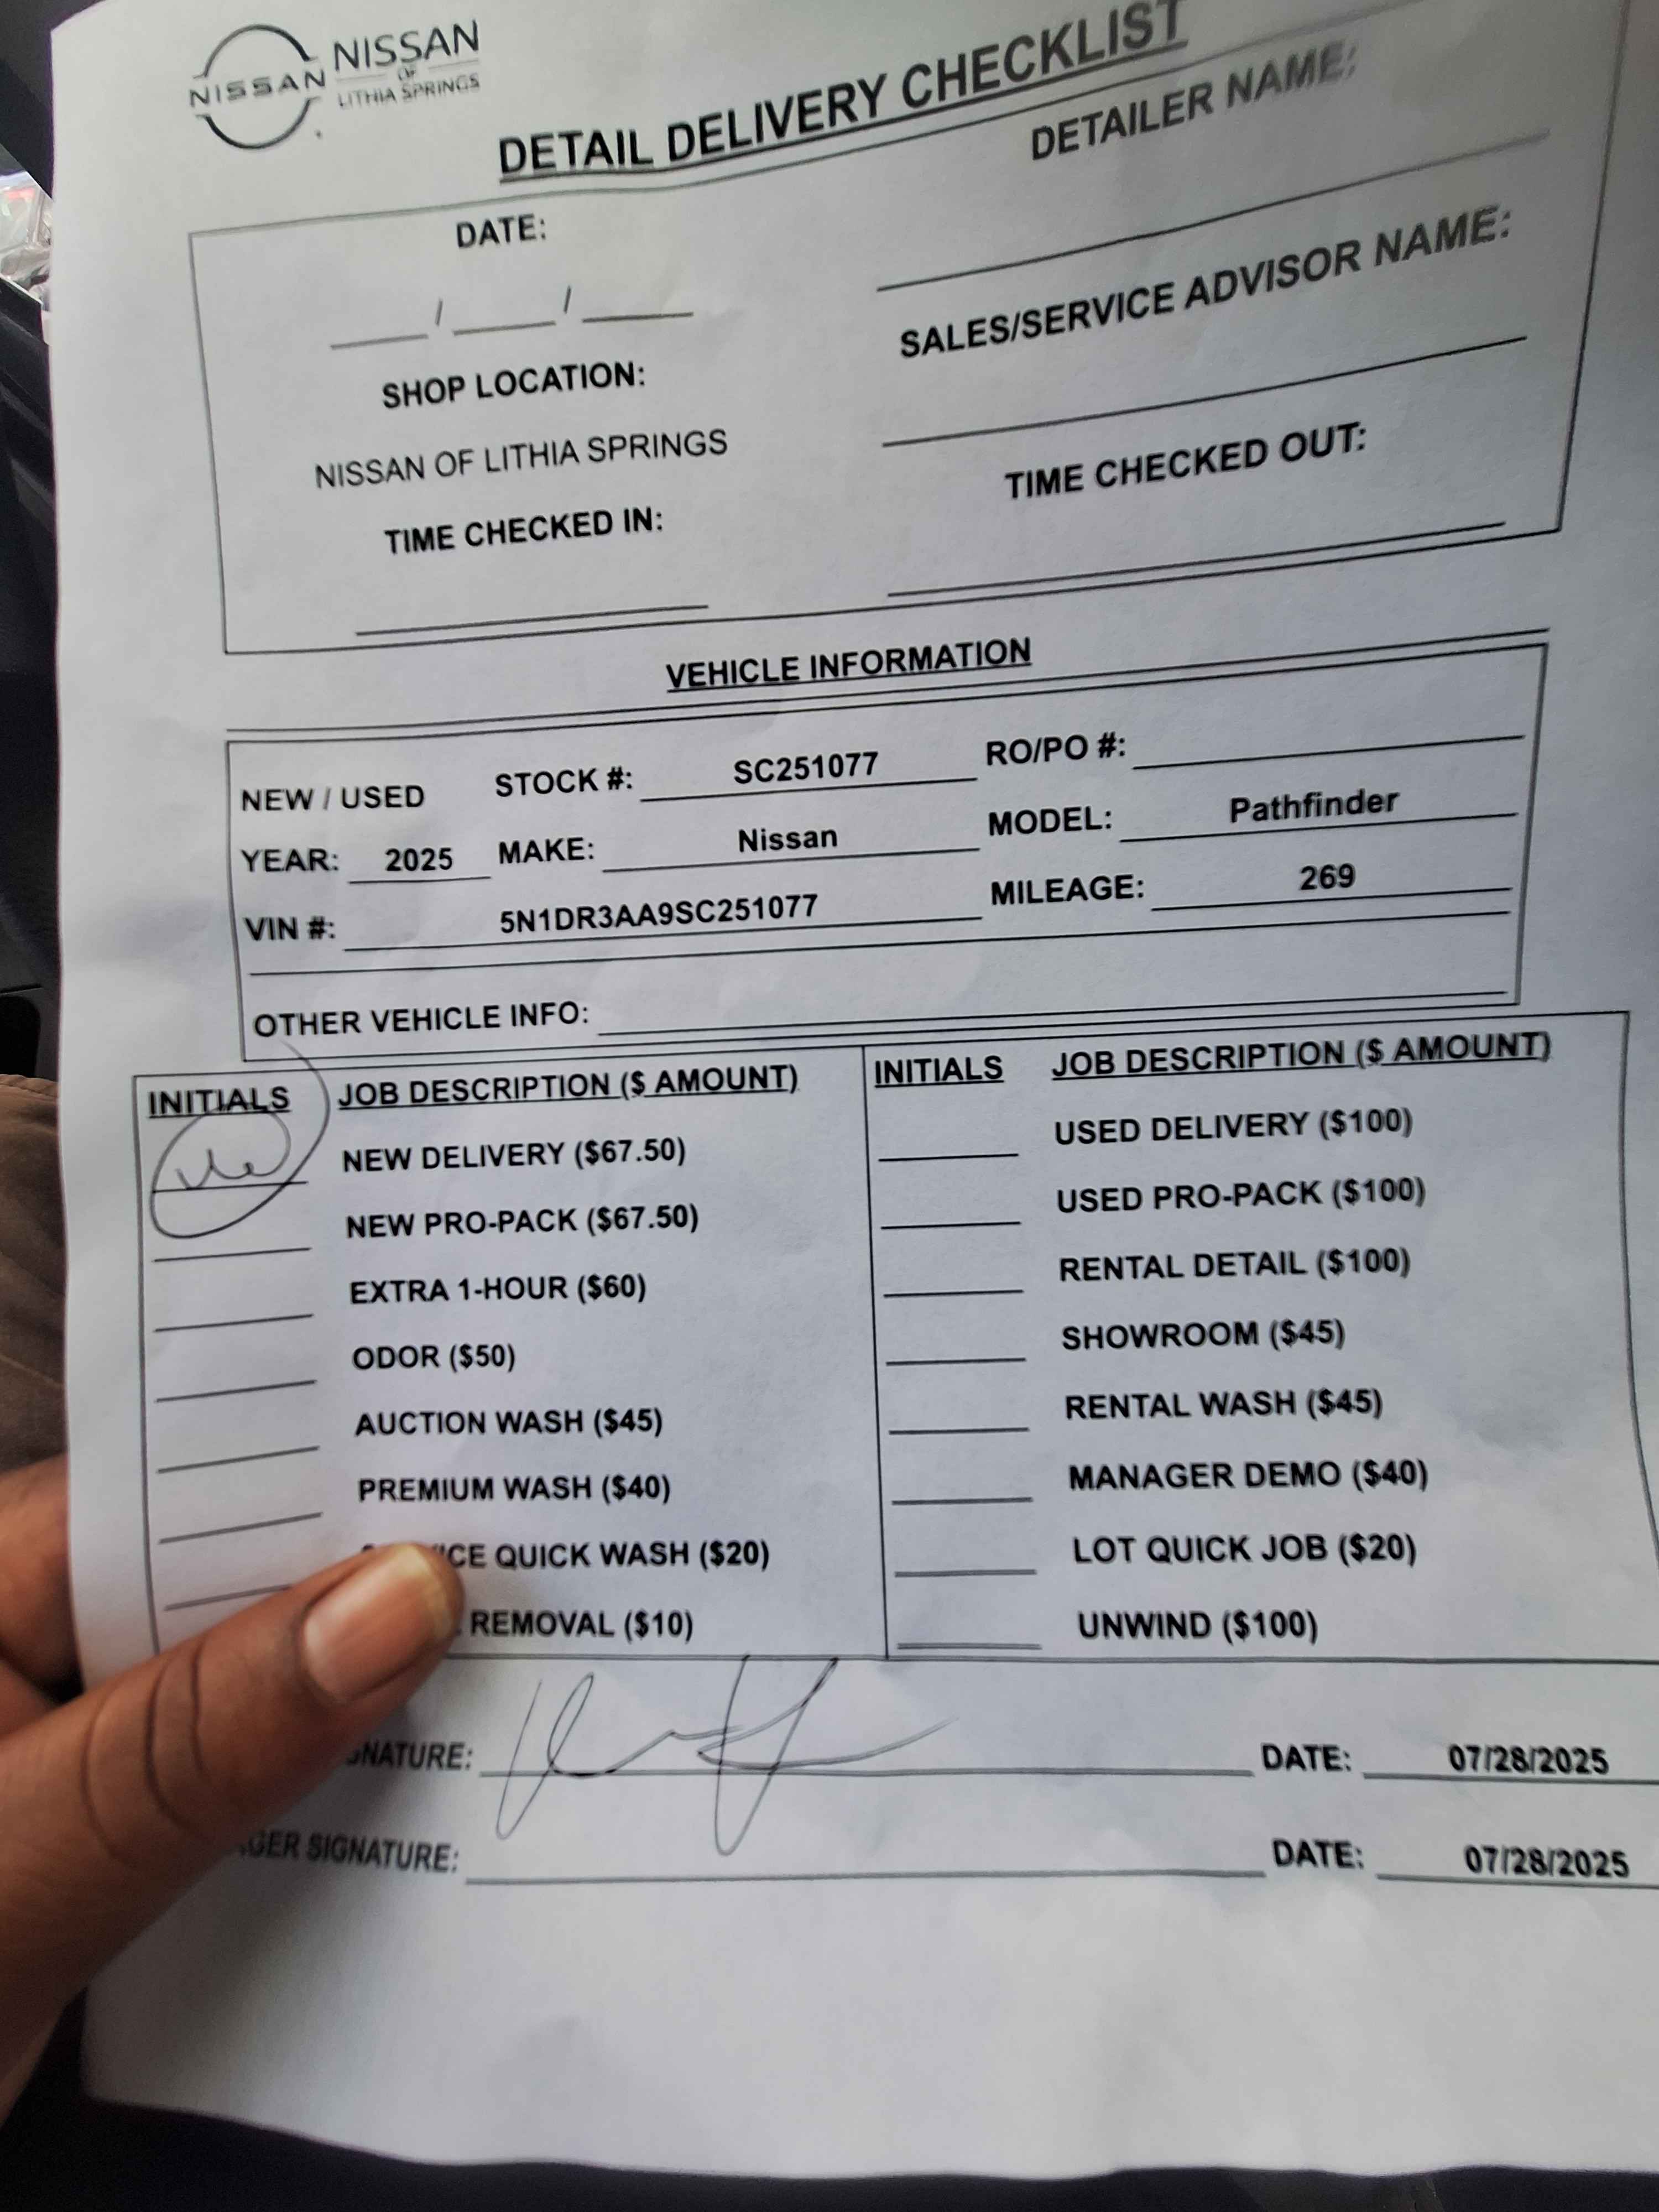 NISSAN
NISSAN
OF
LITHIA SPRINGS
DETAIL DELIVERY CHECKLIST
DATE:
/ /
DETAILER NAME:
SHOP LOCATION:
NISSAN OF LITHIA SPRINGS
SALES/SERVICE ADVISOR NAME:
TIME CHECKED IN:
TIME CHECKED OUT:
VEHICLE INFORMATION
NEW / USED STOCK #: SC251077 RO/PO #:
YEAR: 2025 MAKE: Nissan MODEL: Pathfinder
VIN #: 5N1DR3AA9SC251077 MILEAGE: 269
OTHER VEHICLE INFO:
INITIALS JOB DESCRIPTION ($ AMOUNT)
NEW DELIVERY ($67.50)
NEW PRO-PACK ($67.50)
EXTRA 1-HOUR ($60)
ODOR ($50)
AUCTION WASH ($45)
PREMIUM WASH ($40)
QUICK WASH ($20)
REMOVAL ($10)
INITIALS JOB DESCRIPTION ($ AMOUNT)
USED DELIVERY ($100)
USED PRO-PACK ($100)
RENTAL DETAIL ($100)
SHOWROOM ($45)
RENTAL WASH ($45)
MANAGER DEMO ($40)
LOT QUICK JOB ($20)
UNWIND ($100)
DATE: 07/28/2025
SIGNATURE: DATE: 07/28/2025